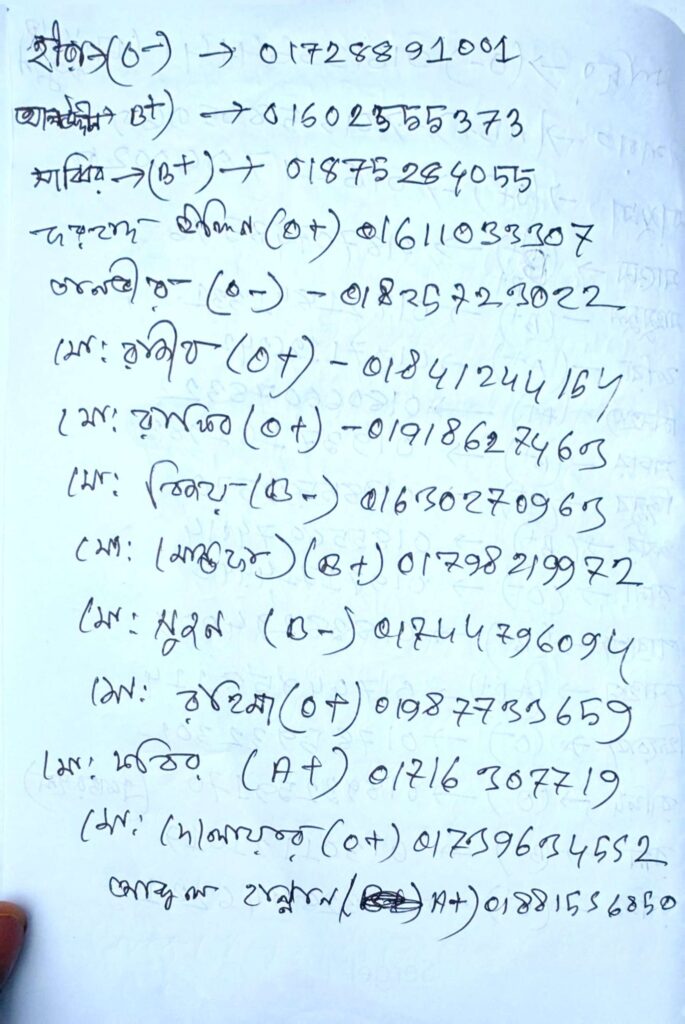 হীরা→(O-) → 01728891001
B+) → 01602355373
সাব্বির →(B+) → 01875284055
(O+) 01611033307
তানভীর - (O-) - 01825723022
মো: রাজীব (O+) - 01841244164
মো: রাকিব (O+) - 019186274603
মো: বিজয় - (B-) 01630270963
মো: (B+) 01798219972
মো: সুমন (B-) 01744796094
মো: রহিম (O+) 01987733659
মো: ফকির (A+) 01716307719
মো: দেলোয়ার (O+) 01739634552
আব্দুল হান্নান ( A+) 01881536850